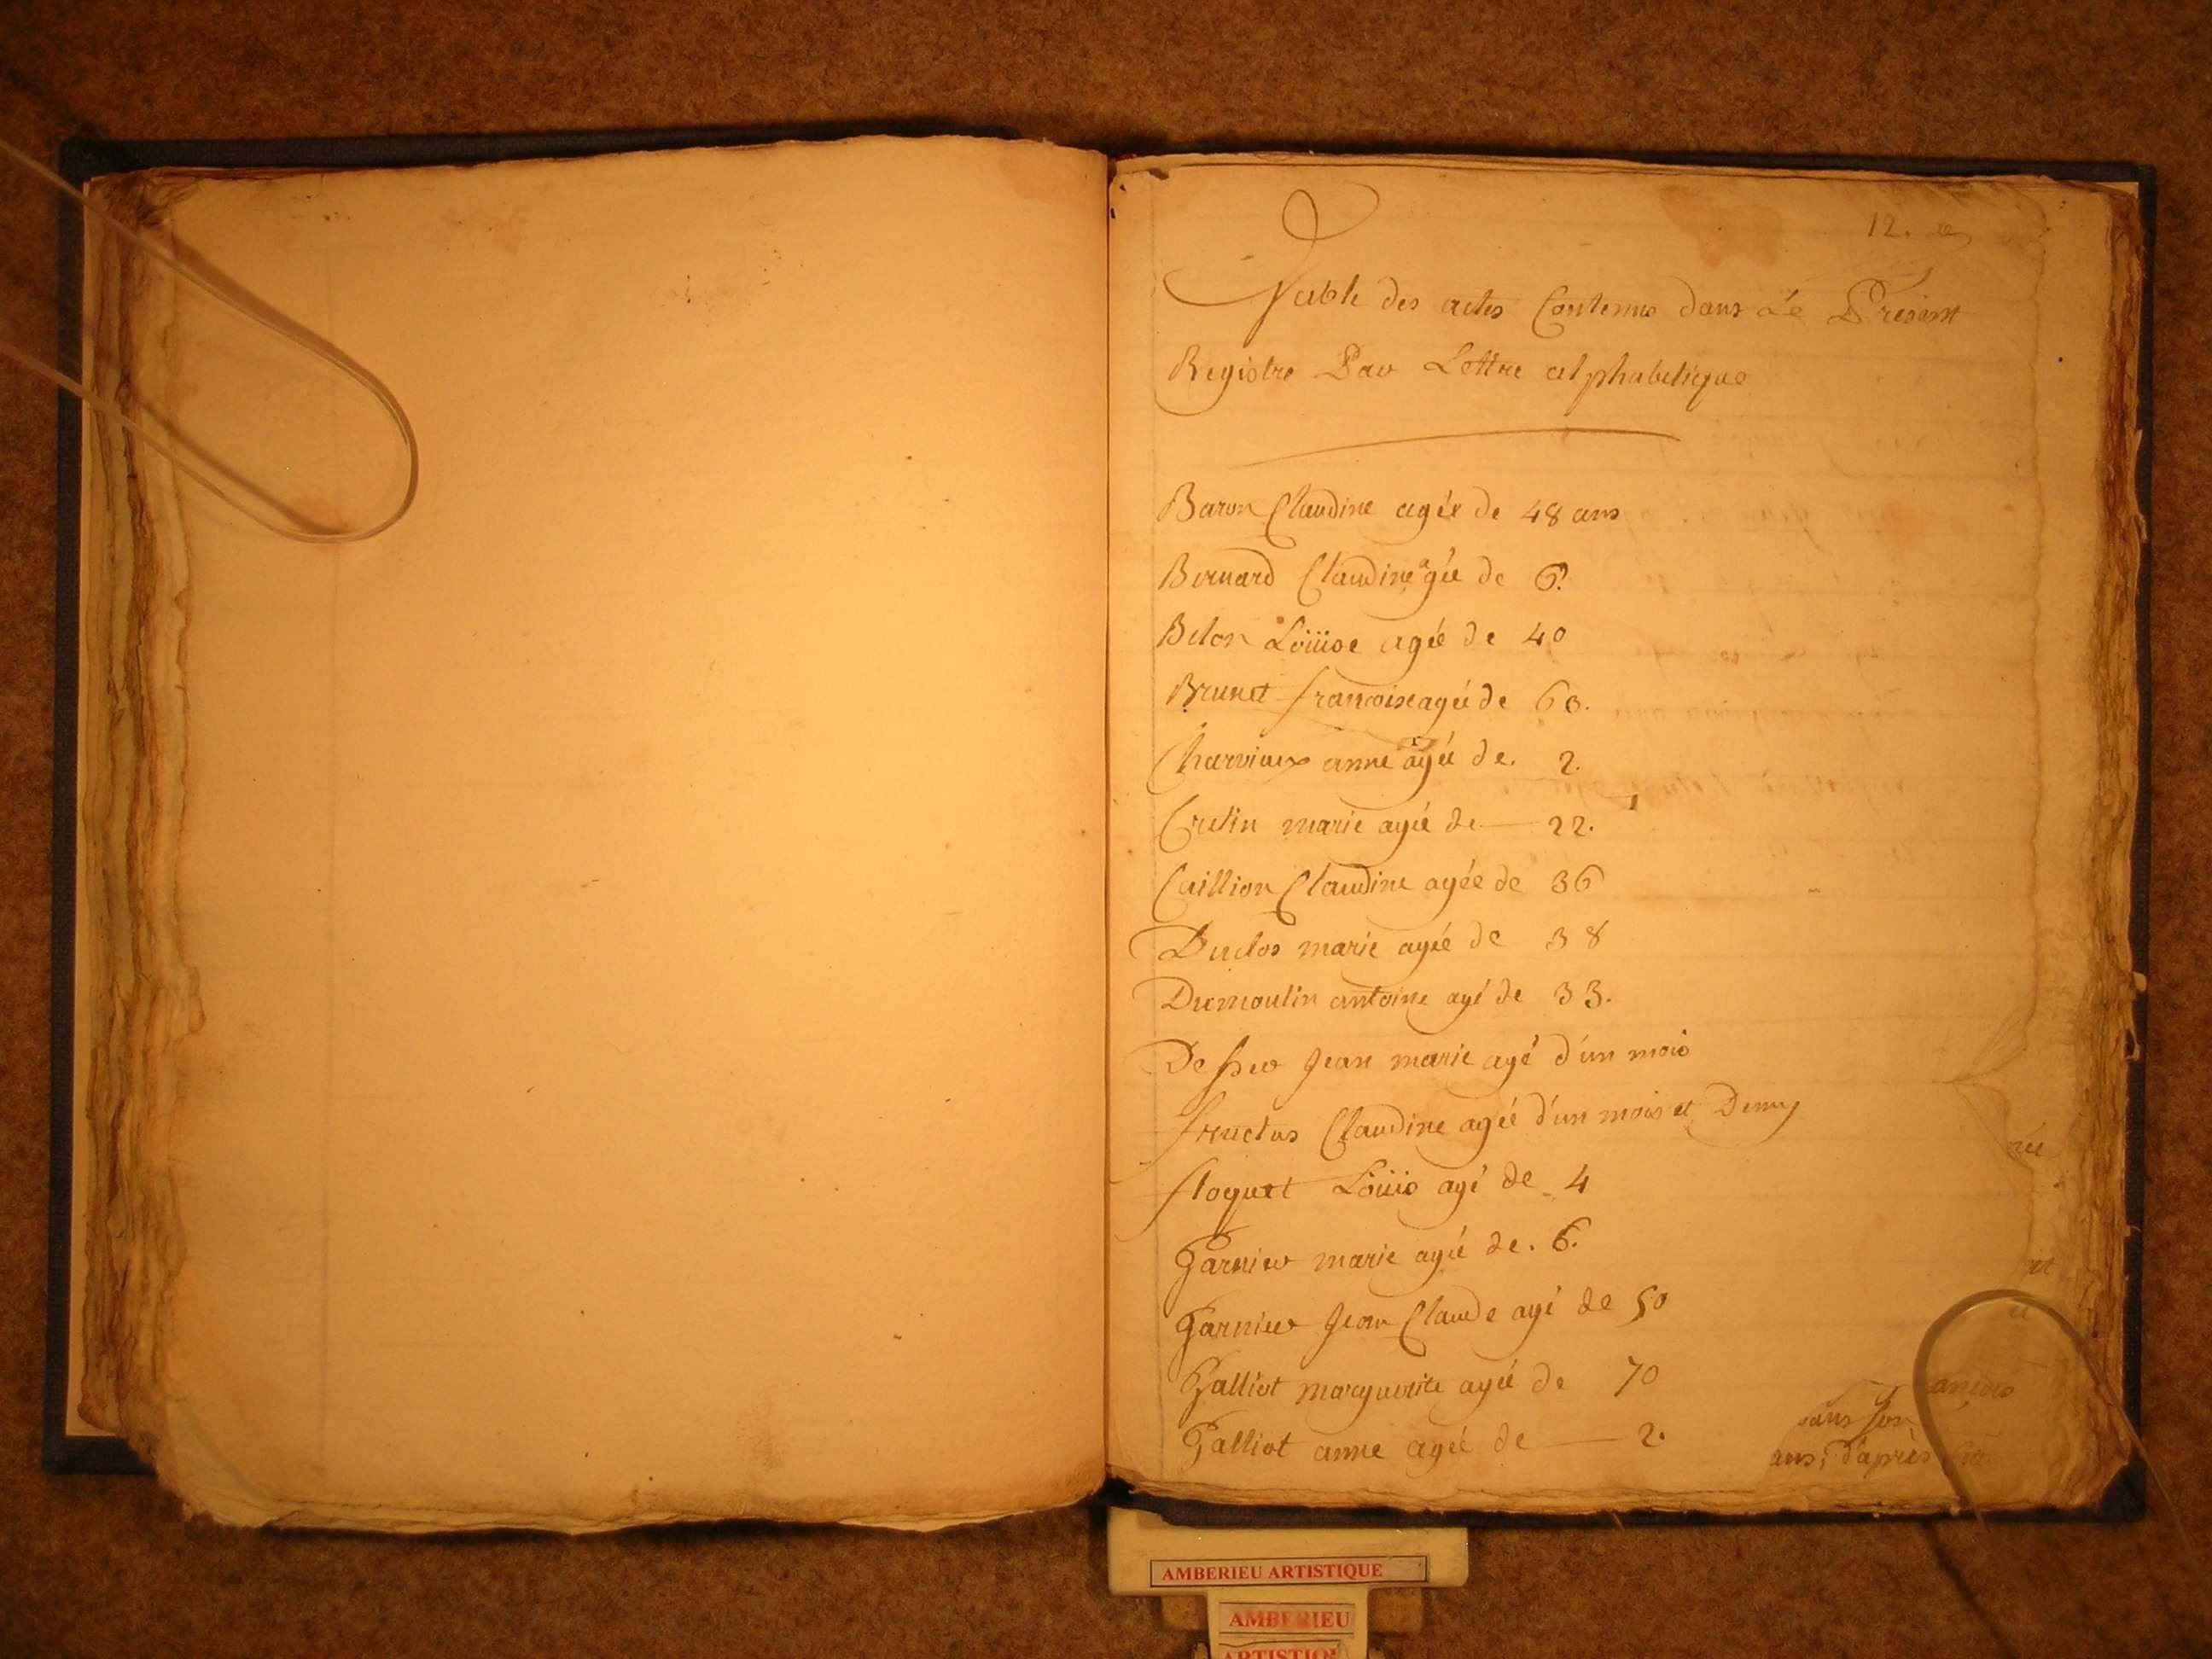 12. e
Table des actes Contenus dans Le Présent
Registre Par Lettre alphabetique
Baron Claudine agée de 48 ans
Bernard Claudine agée de 6.
Belon Loüise agée de 40
Brunet francoise agée de 60.
Charvieux anne agée de. 2.
Cretin marie agée de 22.
Caillion Claudine agée de 36
Duclos marie agée de 38
Dumoulin antoine agé de 33.
Jean marie agé d'un mois
fructus Claudine agée d'un mois et Demy
floquet Loüis agé de 4
Garnier marie agée de. 6.
Garnier Jean Claude agé de 50
Galliot marguerite agée de 70
Galliot anne agée de 2.
née
et
et
sans son
ans, d'après
AMBERIEU ARTISTIQUE
AMBERIEU
ARTISTIQ